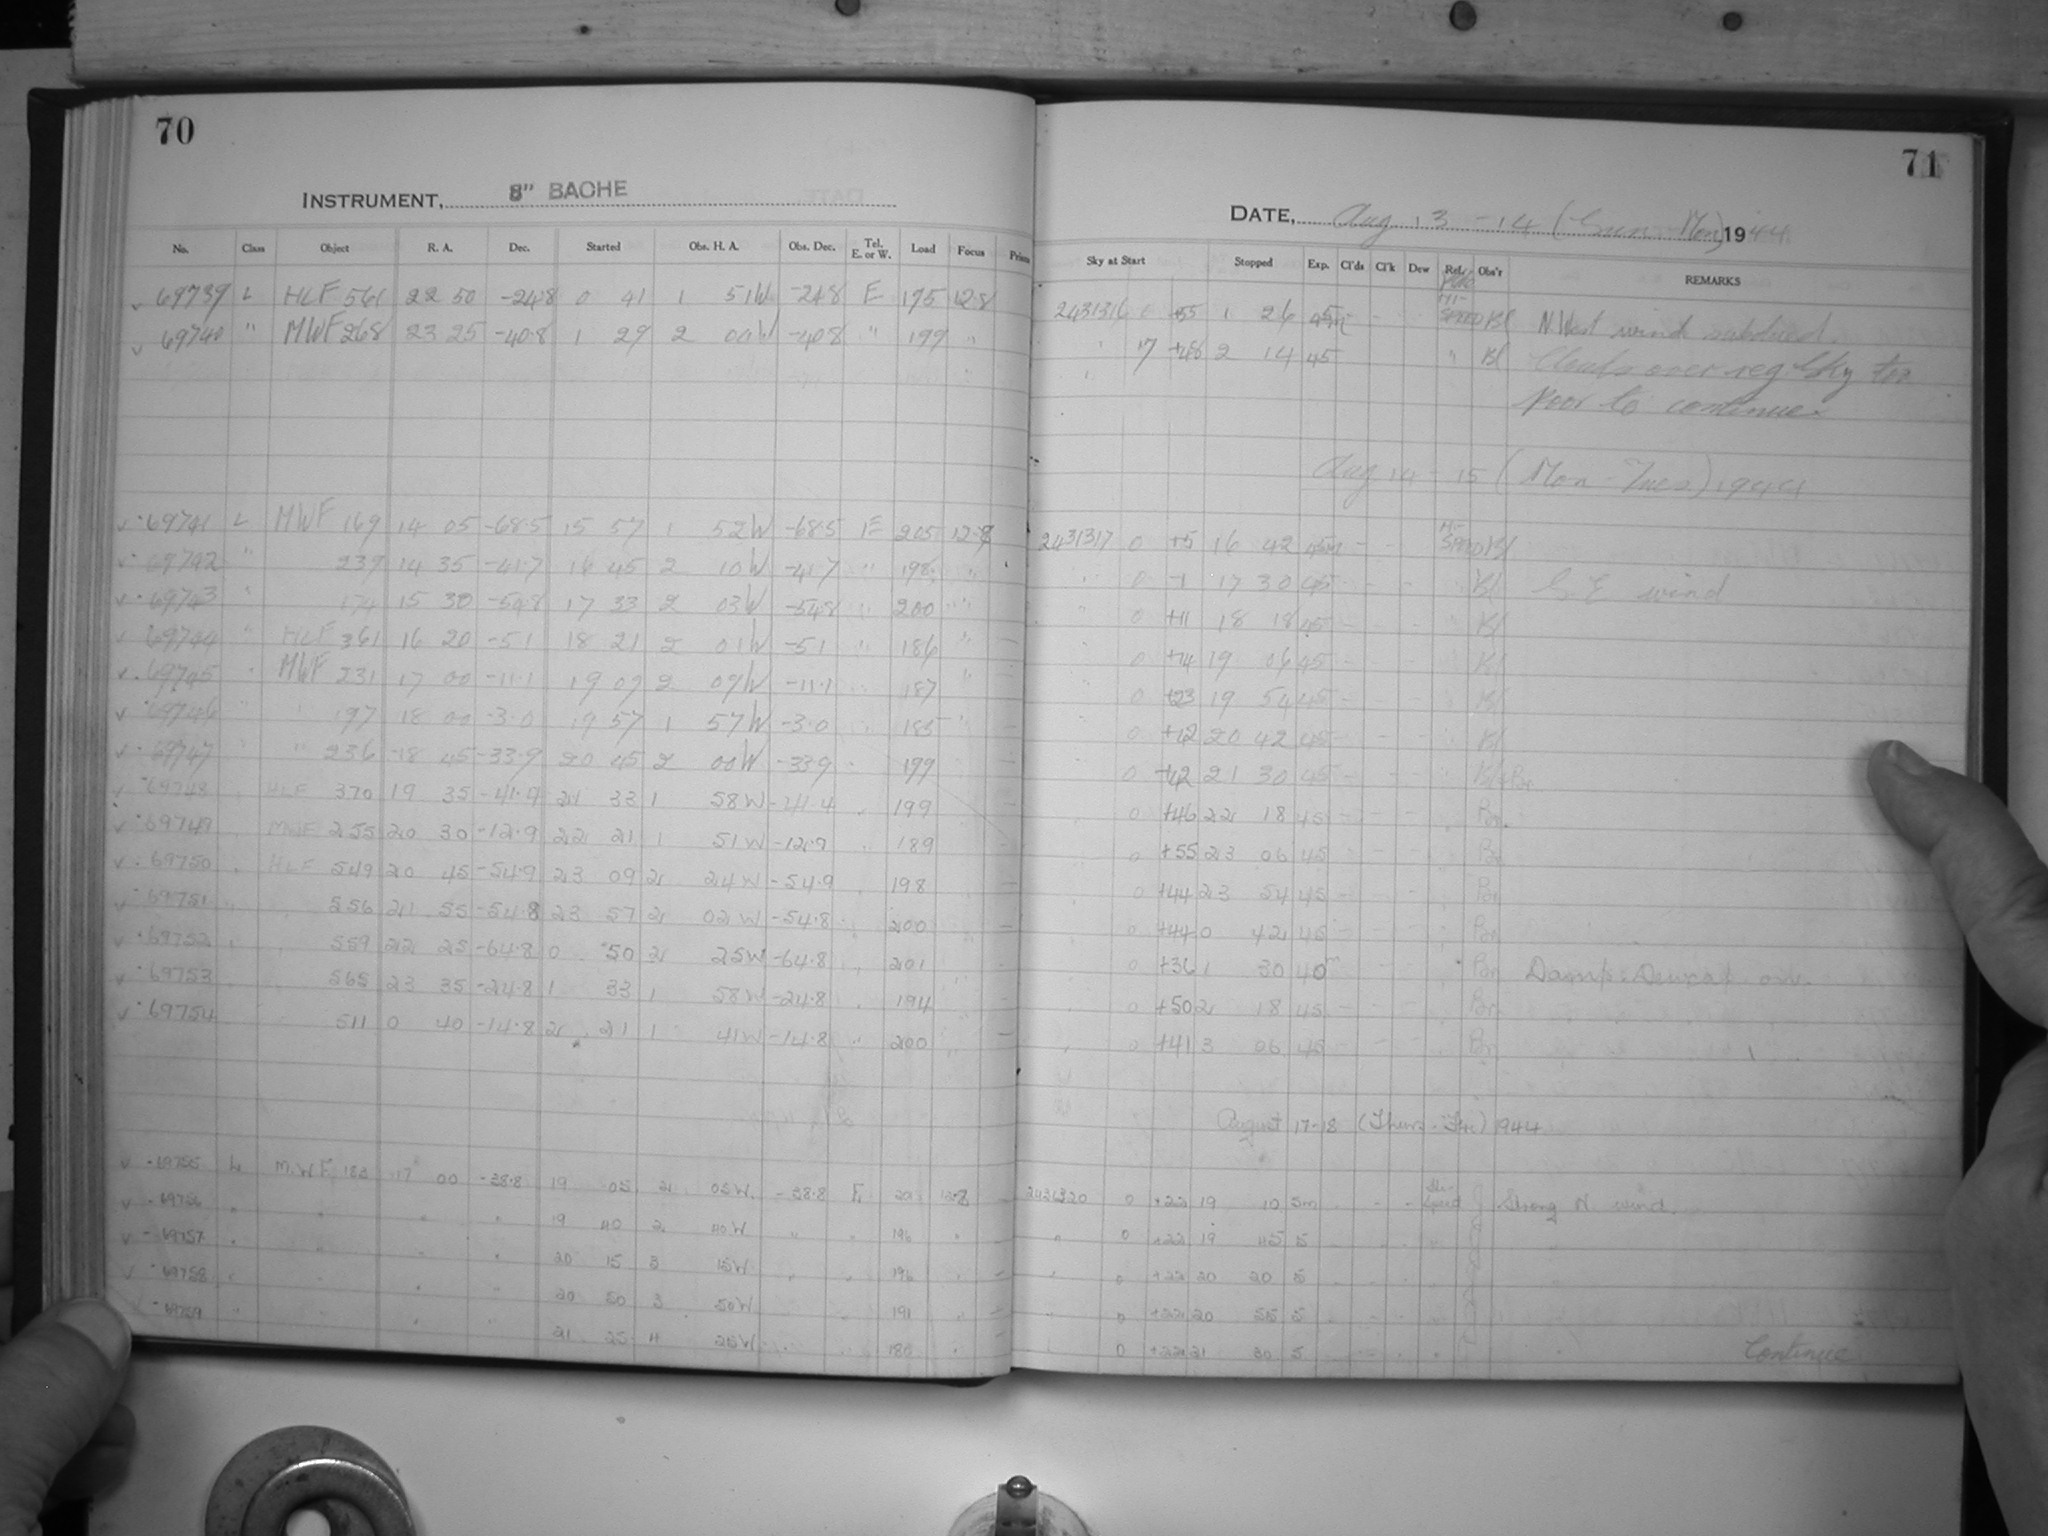 70
INSTRUMENT, 8" BACHE
No. Class Object R. A. Dec. Started Obs. H. A. Obs. Dec. Tel. E. or W. Load Focus
69739 L HLF 561 22 50 -24.8 0 41 1 51W -24.8 E 195 12.8
69740 " MWF 268 23 25 -40.8 1 29 2 00W -40.8 " 199 "
69741 L MWF 169 14 05 -68.5 15 57 1 52W -68.5 E 205 12.8
69742 " 239 14 35 -41.7 16 45 2 10W -41.7 " 198 "
69743 " 174 15 30 -54.8 17 33 2 03W -54.8 " 200 "
69744 " HLF 361 16 20 -5.1 18 21 2 01W -5.1 " 186 "
69745 " MWF 231 17 00 -11.1 19 09 2 09W -11.1 187
69746 197 18 00 -3.0 19 57 1 57W -3.0 185
69747 " " 236 18 45 -33.9 20 45 2 00W -33.9 199
69748 HLF 370 19 35 -41.4 21 33 1 58W -41.4 199
69749 MWF 255 20 30 -12.9 22 21 1 51W -12.9 189
69750 HLF 549 20 45 -54.9 23 09 2 24W -54.9 198
69751 556 21 55 -54.8 23 57 2 02W -54.8 200
69752 559 22 25 -64.8 0 50 2 25W -64.8 201
69753 565 23 35 -24.8 1 33 1 58W -24.8 194
69754 511 0 40 -14.8 2 21 1 41W -14.8 " 200
69755 L M.W.F. 183 17 00 -38.8 19 05 2 05W. -38.8 E. 12.8
69756 " " " " 19 40 2 40W " " 196 "
69757 " " " " 20 15 3 15W " " 196 "
69758 " " " 20 50 3 50W 191 "
69759 " " " 21 25 4 25W " "
71
DATE, Aug 13-14 (Sun.-Mon) 1944
Sky at Start Stopped Exp. Cl'ds Cl'k Dew Rel. Obs'r REMARKS
2431316 0 +55 1 26 45m - - HI-SPEED Bl N.West wind subdued.
" 17 +48 2 14 45 " Bl Clouds over reg Sky too
poor to continue.
Aug 14-15 (Mon-Tues) 1944
2431317 0 +5 16 42 45m - - HI-SPEED Bl
" 0 -1 17 30 45 - - - Bl S.E wind
" 0 +11 18 18 45 - - - Bl
0 +14 19 06 45 - - - Bl
0 +23 19 54 45 - - - Bl
0 +12 20 42 45 - - - Bl
0 +42 21 30 45 - - - Bl+Br.
0 +46 22 18 45 - - - Br.
0 +55 23 06 45 - - - Br
0 +44 23 54 45 - - - Br
0 +44 0 42 45 - - - Br
0 +36 1 30 40m - - - Br Damp. Dewcap on.
0 +50 2 18 45 - - - Br
0 +41 3 06 45 - - - Br
August 17-18 (Thurs.-Fri.) 1944
2431320 0 +22 19 10 5m - - Hi-Speed J Strong N wind.
" 0 +22 19 45 5 J
" 0 +22 20 20 5 J
" 0 +22 20 55 5 J
0 +22 21 30 5 J
Continue